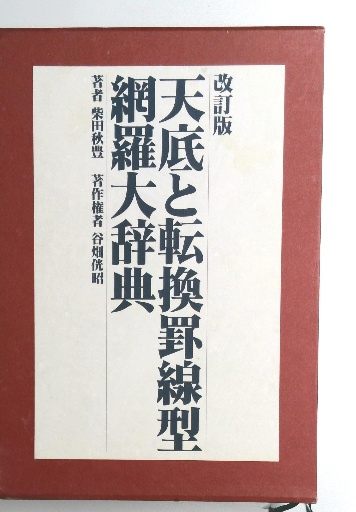 改訂版
天底と転換罫線型
網羅大辞典
著者 柴田秋豊 著作権者 谷畑侊昭